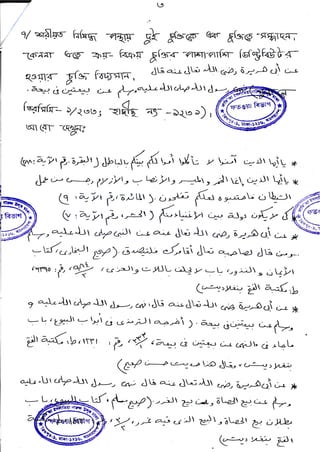 ৭
৭/ শরীয়ত নিষিদ্ধ পন্থায় দুই চুক্তিকে এক চুক্তিতে সন্ধাদেন,
কেননা এতে ক্রয়-বিক্রয় চুক্তির পাশাপাশি ডিস্ট্রিবিউটর
হওয়ার চুক্তি বিদ্যমান,
عن أبي هريرة رضي الله تعالى عنه قال
رسول الله صلى الله عليه وسلم عن بيعتين في بيعة.
(তিরমিযি- ১/২৩৩; হাদীস নং- ১২৩১).
আরো দেখুন:
* يا أيها الذين آمنوا لا تأكلوا أموالكم بينكم بالباطل (البقرة، رقم الآية:
* يا أيها الذين آمنوا إنما الخمر والميسر والأنصاب والأزلام رجس من عمل
الشيطان فاجتنبوه لعلكم تفلحون. (المائدة، رقم الآية: ٩
* كي لا يكون دولة بين الأغنياء منكم (الحشر، رقم الآية: ٧)
* عن أبي هريرة رضي الله تعالى عنه عن النبي صلى الله عليه وسلم
ومن قال لصاحبه تعال أقامرك فليتصدق (صحيح البخاري، كتاب
الأيمان والنذور، باب لا يحلف باللات والعزى،
* عن أبي هريرة رضي الله تعالى عنه قال: نهى رسول الله صلى الله عليه و
وسلم عن بيعتين في بيعة. (أخرجه الترمذي في أبواب البيوع، باب
ماجاء في النهي عن بيعتين في بيعة، رقم: ١٢٣١، ط: مكتبة الفتح
بنغلاديش)، وقال هذا حديث حسن صحيح)
* عن أبي هريرة رضي الله تعالى عنه قال نهى رسول الله صلى الله عليه
وسلم عن بيع الحصاة وعن بيع الغرر. (صحيح مسلم، كتاب البيوع، باب
بطلان بيع الحصاة والبيع الذي فيه غرر،
الفتح بنغلاديش)